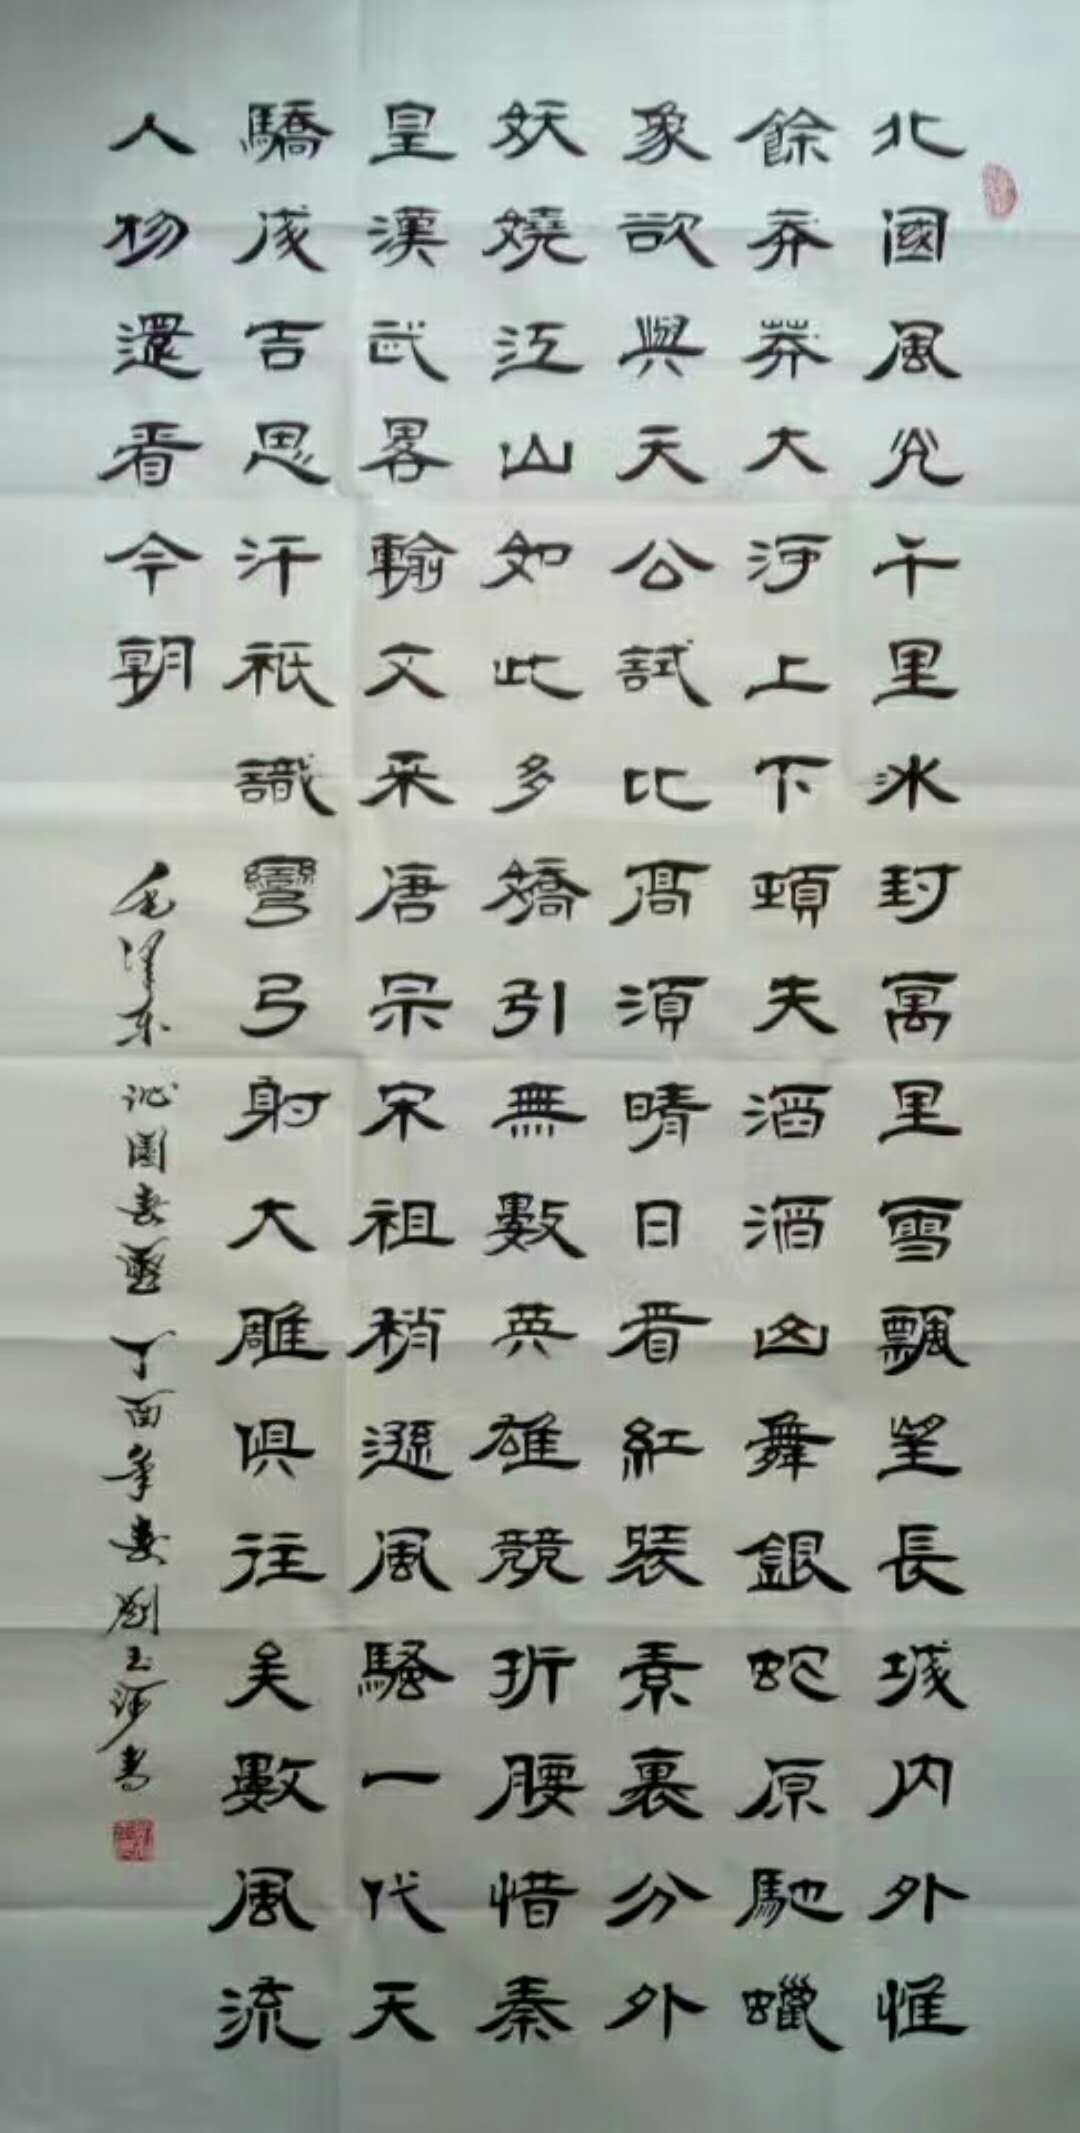 北國風光千里冰封萬里雪飄望長城内外惟
餘莽莽大河上下頓失滔滔山舞銀蛇原馳蠟
象欲與天公試比高須晴日看紅裝素裹分外
妖嬈江山如此多嬌引無數英雄競折腰惜秦
皇漢武畧輸文采唐宗宋祖稍遜風騷一代天
驕成吉思汗祇識彎弓射大雕俱往矣數風流
人物還看今朝
毛澤东 沁園春雪 丁酉年春劉玉書